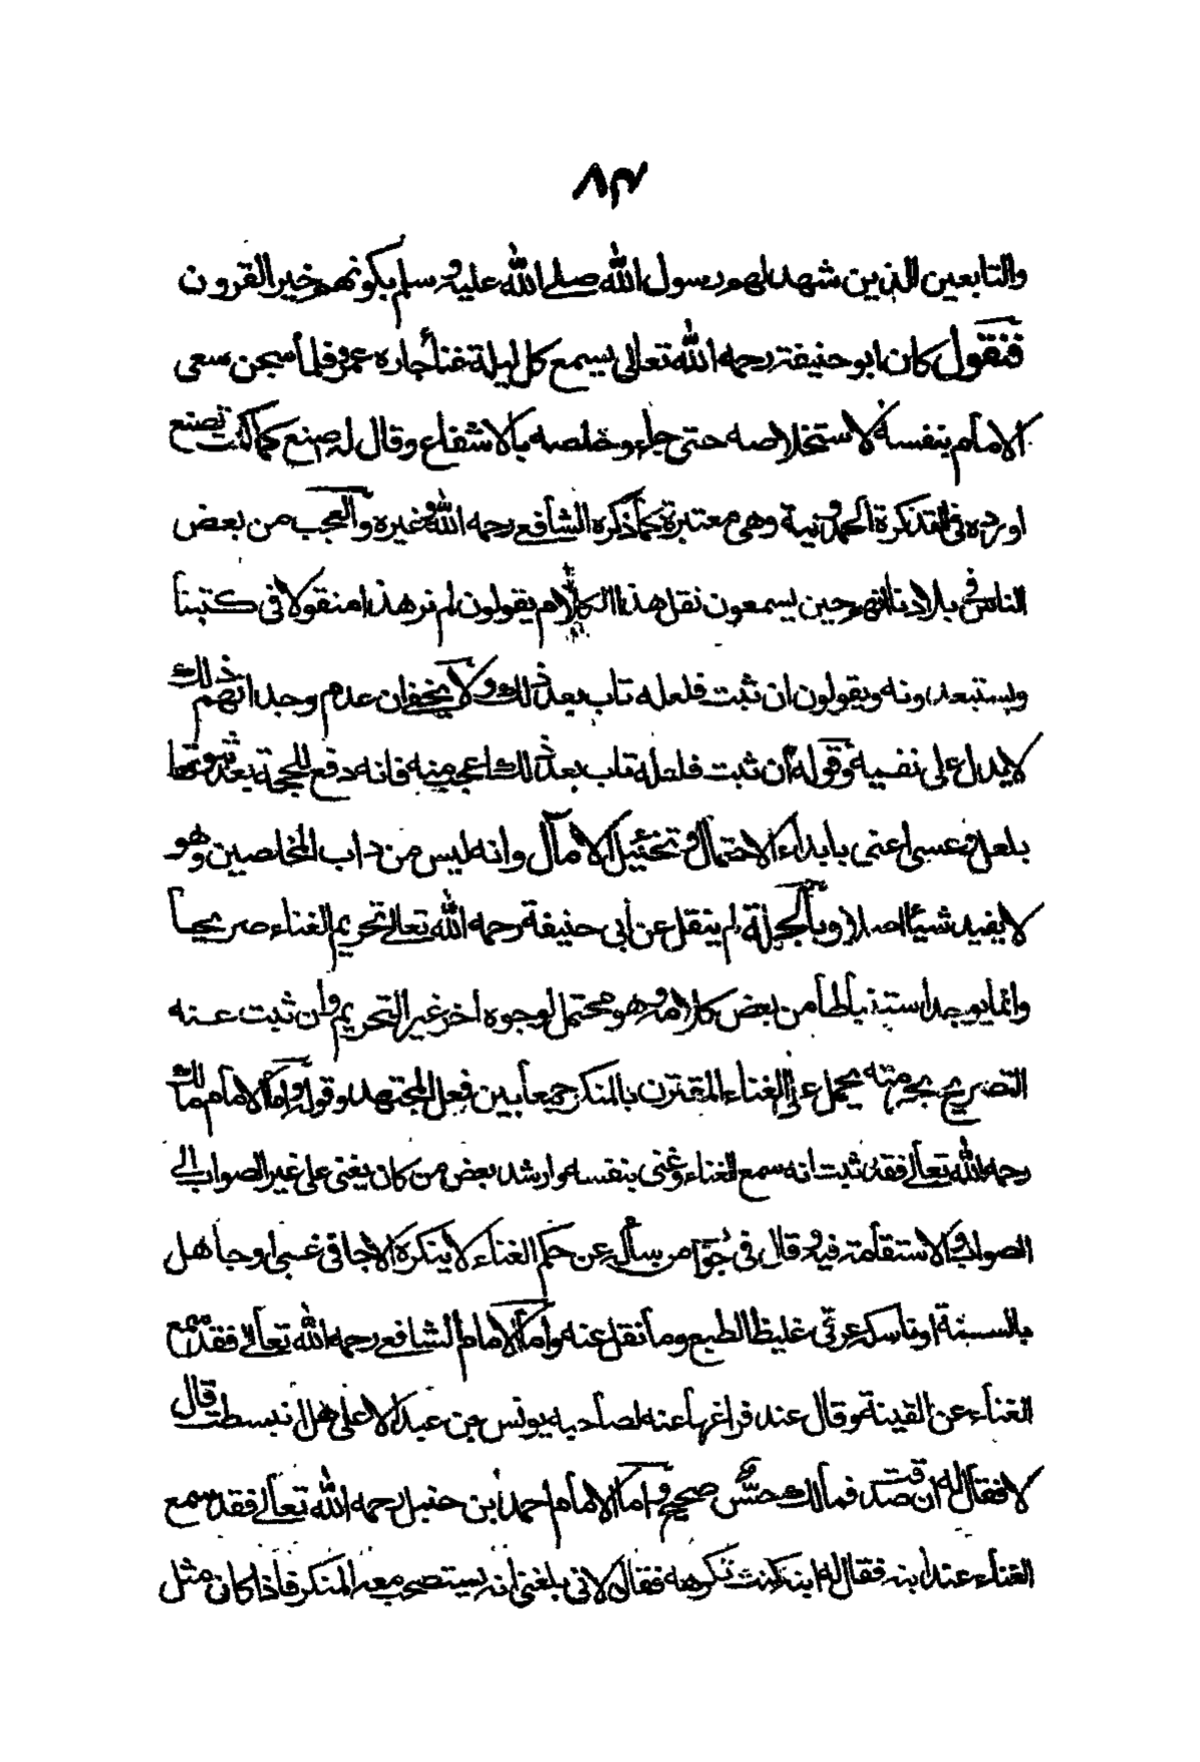 ٨٣
والتابعين الذين شهد لهم رسول الله صلى الله عليه وسلم بكونهم خير القرون
فنقول كان ابو حنيفة رحمه الله تعالى يسمع كل ليلة غناء جاره عمرو فلما سجن سعى
الامام بنفسه لاستخلاصه حتى جاء وخلصه بالاشفاع وقال له صنع كما كنت تصنع
اورده فى التذكرة الحمدونية وهى معتبرة كما ذكره الشافعي رحمه الله وغيره والعجب من بعض
الناس فى بلادنا انهم حين يسمعون نقل هذا الكلام يقولون لم نر هذا منقولا فى كتبنا
ويستبعدونه ويقولون ان ثبت فلعله تاب بعد ذلك ولا يخفى ان عدم وجدانهم ذلك
لا يدل على نفسيه وقوله ان ثبت فلعله تاب بعد ذلك اعجب منه فانه دفع للحجة بعد ثبوتها
بلعل وعسى اعنى بابداء الاحتمال وتخئيل الامال وانه ليس من داب المخاصين وهو
لا يفيد شيئا اصلا وبالجملة لم ينقل عن أبى حنيفة رحمه الله تعالى تحريم الغناء صريحا
وانما يوجد استنباطا من بعض كلامه وهو محتمل لوجوه أخر غير التحريم وان ثبت عنه
التصريح بحرمته يحمل على الغناء المقترن بالمنكر جمعا بين فعل المجتهد وقوله واما الامام مالك
رحمه الله تعالى فقد ثبت انه سمع الغناء وغنى بنفسه وارشد بعض من كان يغنى على غير الصواب الى
الصواب والاستقامة فيه وقال فى جواب من سأله عن حكم الغناء لا ينكره الا جافى غبى او جاهل
بالسنة او ناسك عرقى غليظ الطبع وما نقل عنه واما الامام الشافعي رحمه الله تعالى فقد سمع
الغناء عن القينة وقال عند فراغها عنه لصاحبه يونس بن عبد الاعلى هل انبسطت قال
لا فقال له ان صدقت فمالك حس صحيح واما الامام احمد ابن حنبل رحمه الله تعالى فقد سمع
الغناء عند ابنه فقال له ابنه كنت تكرهه فقال لانى بلغنى انه يستصحب معه المنكر فاذا كان مثل